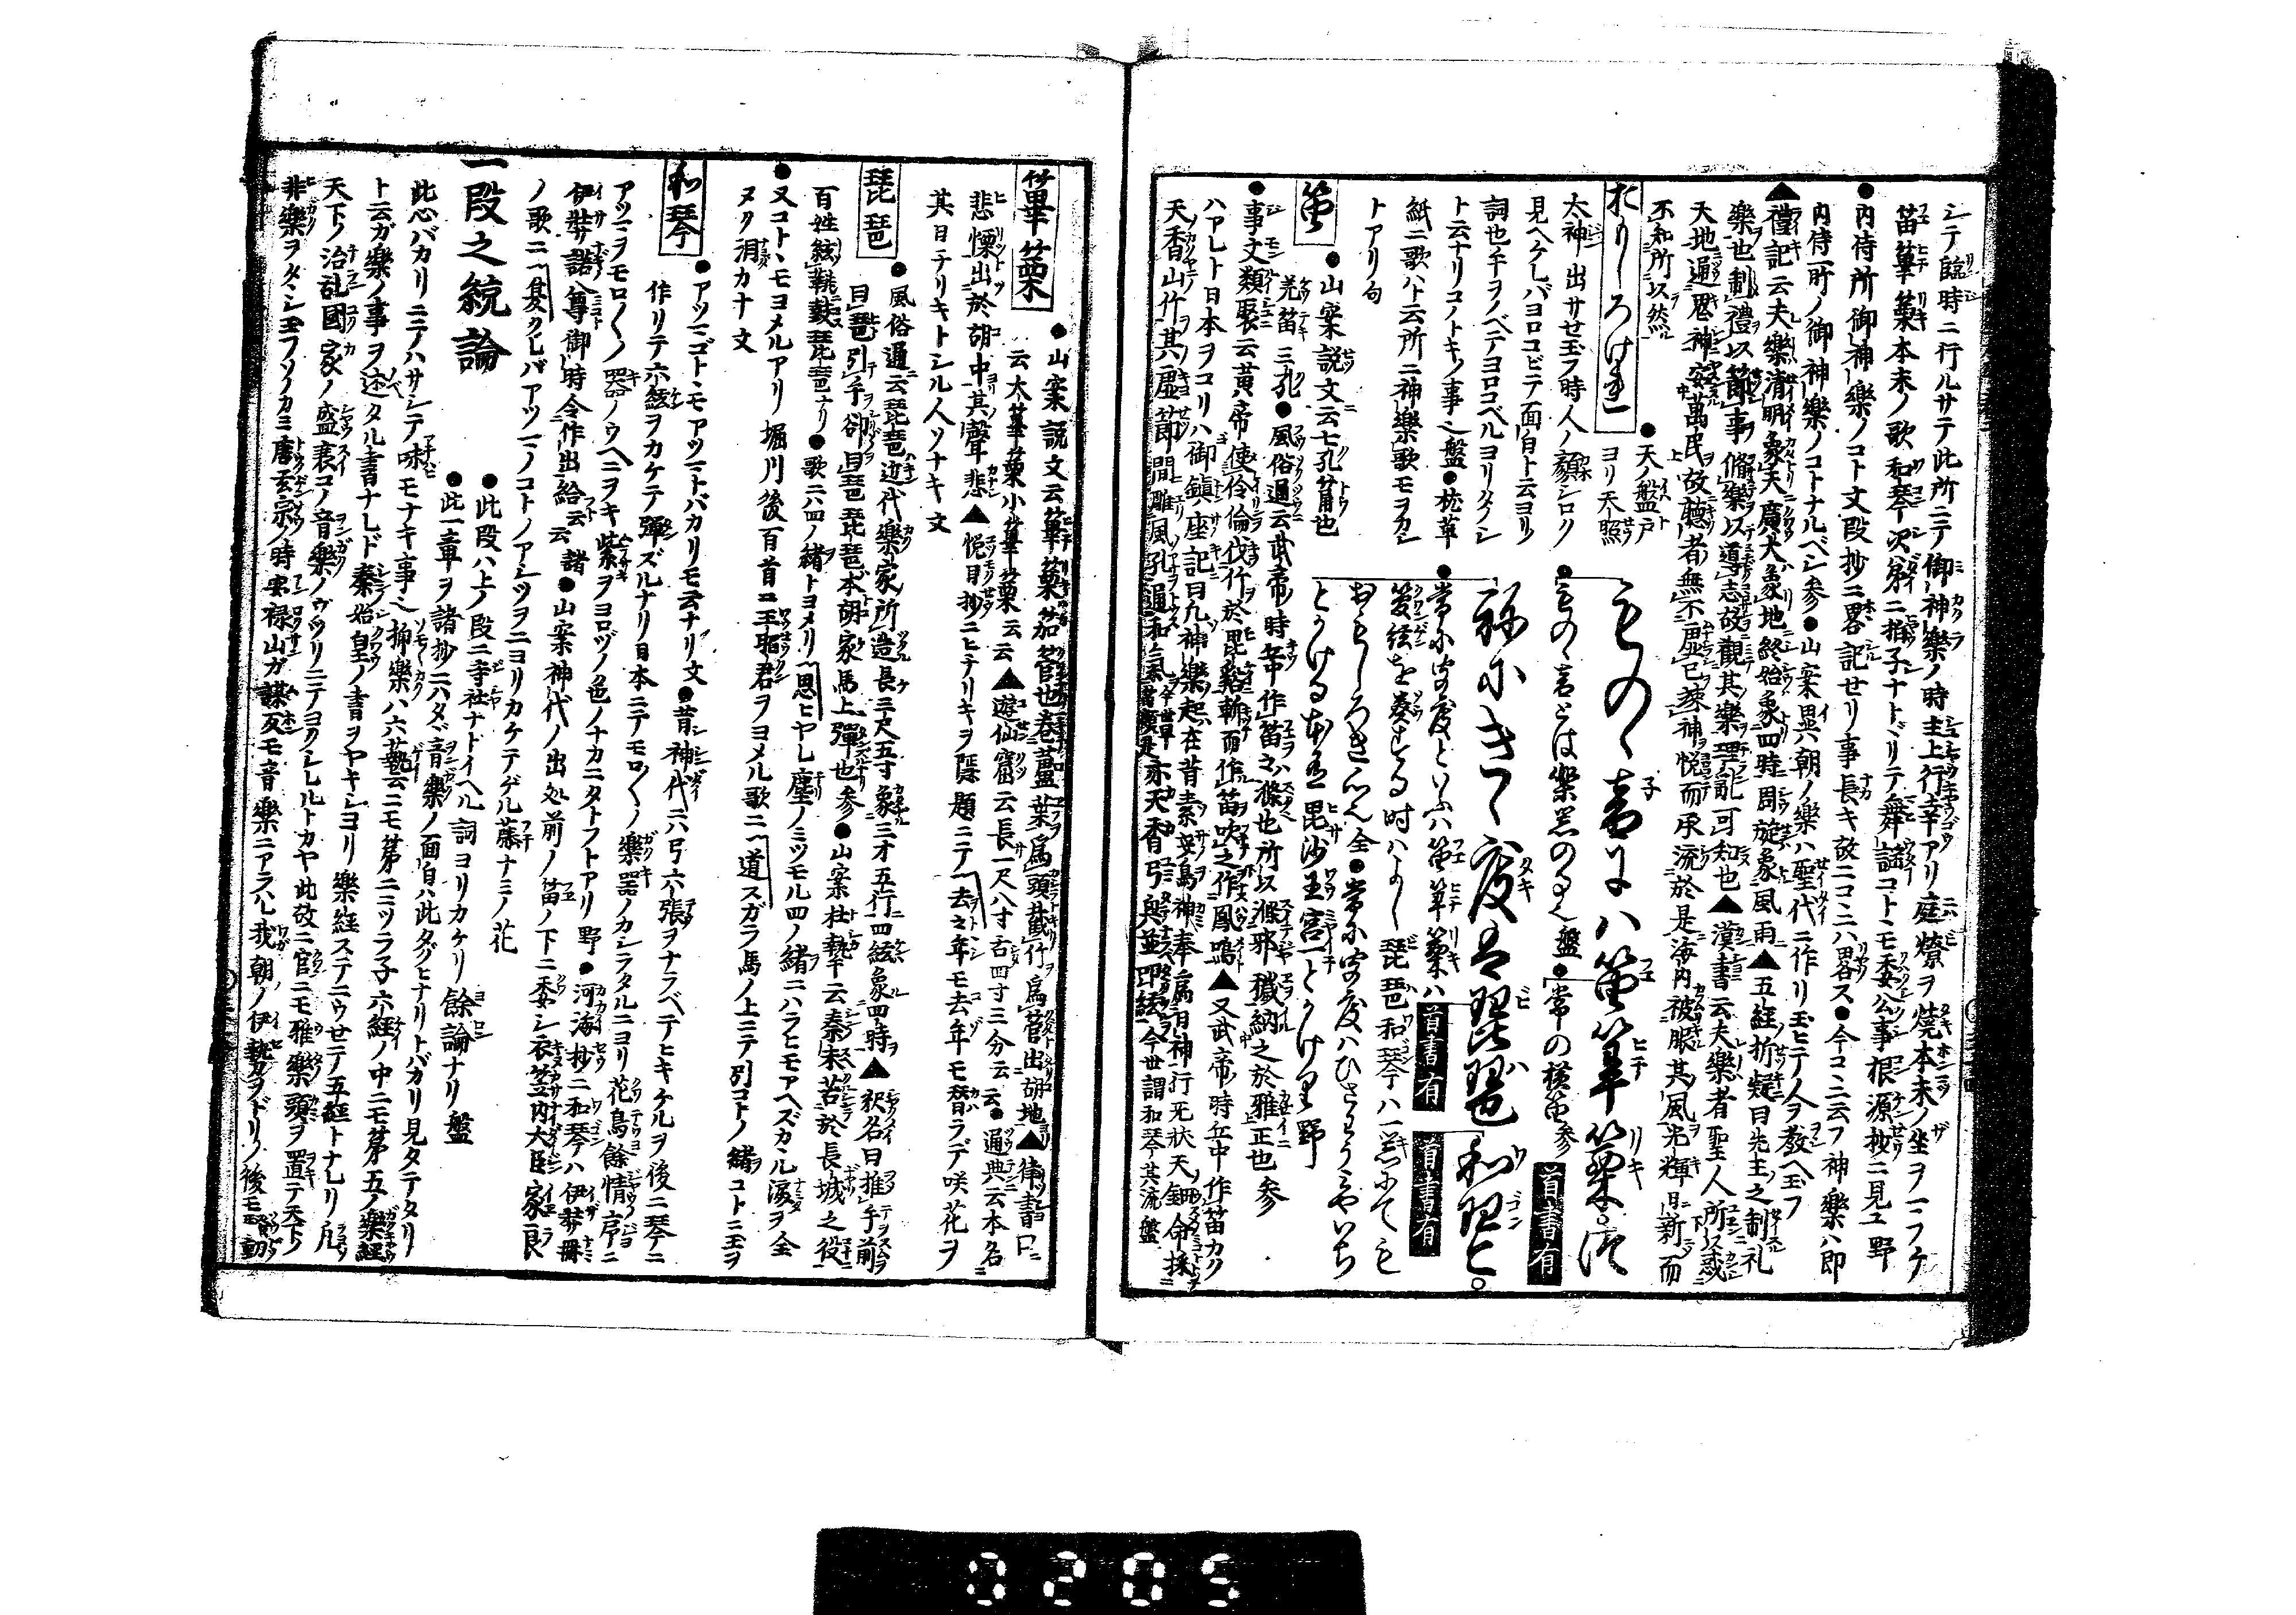 シテ臨時ニ行ルサテ此所ニテ御神樂ノ時主上行幸アリ庭燎ヲ燒本末ノ坐ヲ一ニフケ
笛篳篥本末ノ歌和琴次第ニ拍子ナドヾリテ舞謡コトモ委公事根源抄ニ見ユ野
●内侍所御神樂ノコト文段抄ニ畧記せリ事長キ故ニコヽニハ畧ス●今コヽニ云フ神樂ハ即
内侍所ノ御神樂ノコトナルベシ参●山案異朝ノ樂ハ聖代ニ作リ玉ヒテ人ヲ教ヘ玉フ
▲禮記云夫樂清明象天廣大象地終始象四時周旋象風雨▲五経折疑曰先王之制礼
樂也制禮以節事脩樂以導志故觀其樂理乱可知也▲漢書云夫樂者聖人所以感
天地通思神安萬民故聽者無不虚已竦神悦而承流於是海内被服其風光輝日新而
不知所以然
おもしろけれ
●天ノ盤戸ヨリ天照
太神出サせ玉フ時人ノ顔シロク
見ヘケレバヨロコビテ面白ト云ヨリ
詞也手ヲノベテヨロコベルヨリタノシ
ト云ナリコノトキノ事也盤●枕草
紙ニ歌ハト云所ニ神樂歌モヲカシ
トアリ句
ものゝ音にハ笛篳篥。つ
●ものゝ音とは樂器のる也盤●常の横笛参首書有
ねにきゝ度は琵琶和琴。
●常に聞度といふハ笛篳篥ハ首書有首書有
管絃を奏する時はよし琵琶和琴ハ一器にても
おもしろき心也全●常に聞度ハひさうミやいち
とかける本有毘沙王宮とかけり野
笛
●山案説文云七孔筩也
羌笛三孔●風俗通云武帝時丘仲作笛之ヲハ滌也所以滌邪穢納之於雅正也参
●事文類聚云黄帝使伶倫伐竹於昆谿斬而作笛吹之作鳳鳴▲又武帝時丘中作笛カク
ハアレト日本ヲコリハ御鎮座記曰凡神樂起在昔素戔烏神奉為日神行无状天鈿命採
天香山竹其虚節間雕風孔通和氣亦天香弓與並叩絃今世謂和琴其流盤
篳篥
●山案説文云篳篥笳管也卷蘆葉為頭截竹為管出胡地▲律書曰
云大篳篥小篳篥云云▲遊仙窟云長一尺八寸古四寸三分云云●通典云本名
悲慄出於胡中其聲悲▲悦目抄ニヒテリキヲ隱題ニテ〽去之年モ去年モ替ラデ咲花ヲ
其日テリキトシル人ソナキ文
琵琶
●風俗通云琵琶近代樂家所造長三尺五寸象三才五行四絃象四時▲釈名曰推手前
曰琵引手卻曰琶琵琶本胡家馬上彈也参●山案杜摯云秦末苦於長城之役
百姓絃鞉鼓琵琶ナリ●歌ニハ四ノ緒トヨメリ〽思ヒヤレ塵ノミツモル四ノ緒ニハラヒモアヘズカヽル涙ヲ全
●又コトヽモヨメルアリ堀川後百首ニ王昭君ヲヨメル歌ニ〽道スガラ馬ノ上ニテ引コトノ緒コトニ玉ヲ
ヌク涓カナ文
和琴
●アツマゴトヽモアツマトバカリモ云ナリ文●昔神代ニハ弓六張ヲナラベテヒキケルヲ後ニ琴ニ
作リテ六絃ヲカケテ彈ズルナリ日本ニテモロ〳〵ノ樂器ノカシラタルニヨリ花鳥餘情序ニ
アツマヲモロ〳〵ノ器ノウヘニヲキ紫ヲヨロヅノ色ノナカニタトフトアリ野●河海抄ニ和琴ハ伊弉冊
伊弉諾尊御時令作出給云云諸●山案神代ノ出処前ノ笛ノ下ニ委シ衣笠内大臣家良
ノ歌ニ〽夏クレバアツマノコトノアシツヲニヨリカケテゲル藤ナミノ花
一段之統論
●此段ハ上ノ段ニ寺社ナドイヘル詞ヨリカケリ餘論ナリ盤
●此一章ヲ諸抄ニハタヾ音樂ノ面白ハ此タグヒナリトバカリ見タテタリ
此心バカリニテハサシテ味モナキ事也抑樂ハ六藝云ニモ第ニニツラ子六經ノ中ニモ第五ノ樂經
ト云ガ樂ノ事ヲ述タル書ナレド秦始皇ノ書ヲヤキシヨリ樂経ステニウせテ五経トナレリ凡
天下ノ治乱國家ノ盛衰コノ音樂ノウツリニテヨクシルトカヤ此故ニ官ニモ雅樂頭ヲ置テ天下ノ
非樂ヲタヾシ玉フソノカミ唐玄宗ノ時安禄山ガ謀反モ音樂ニアラハレ我朝ノ伊勢ヲドリノ後モ
0205